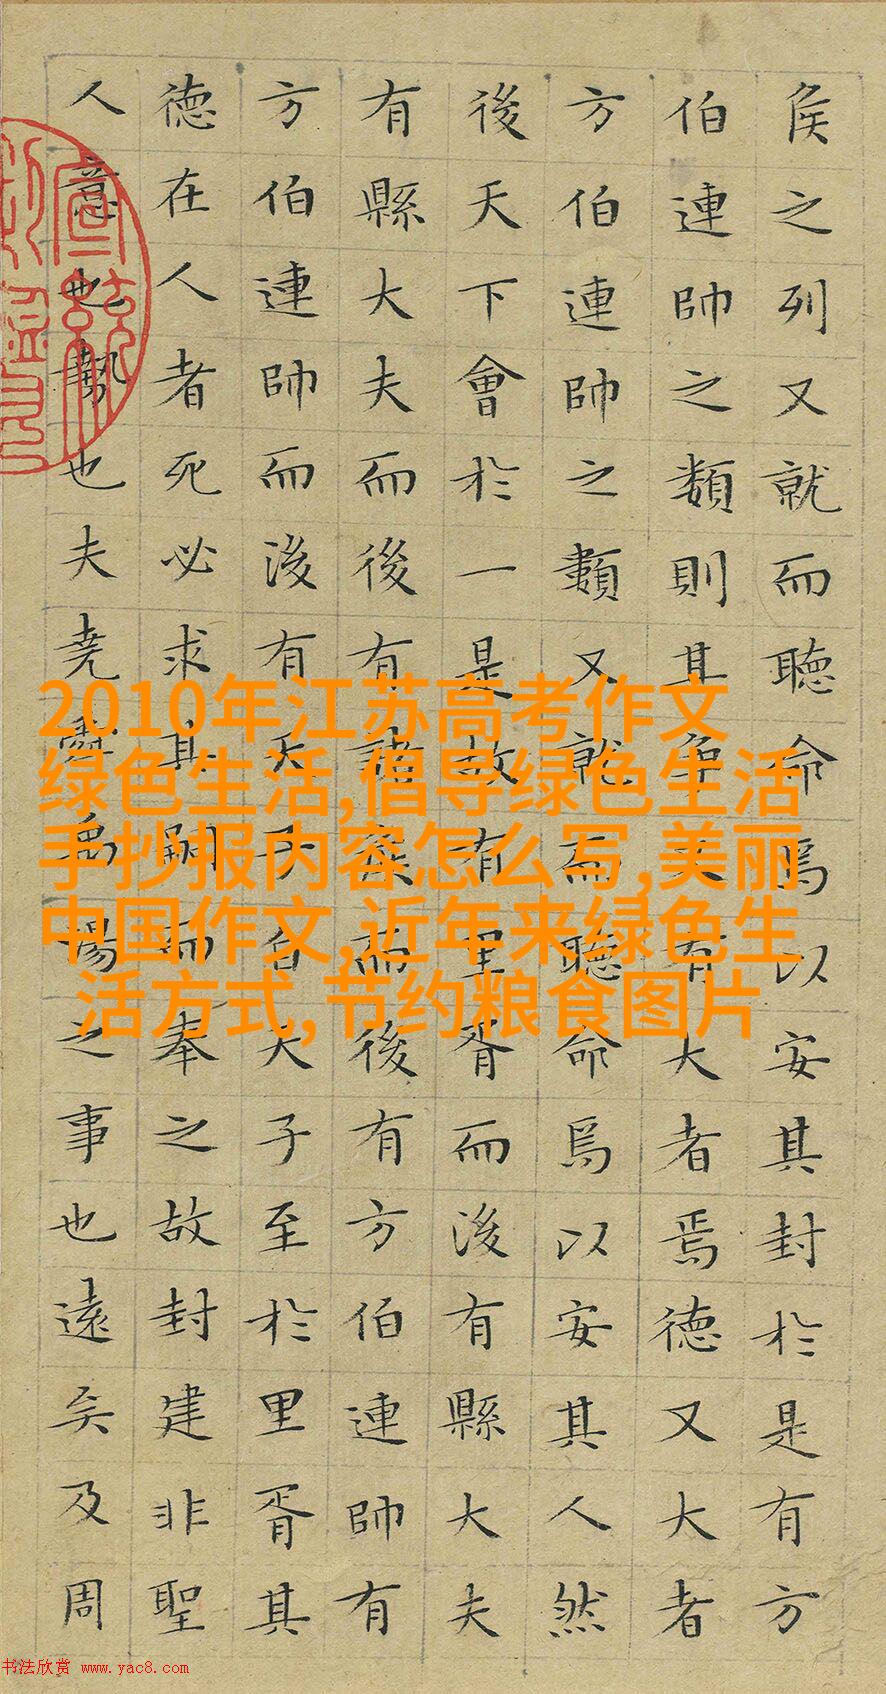 侯之列又就而聽命焉以安其封於是有方
伯連帥之類則其爭又有大者焉德又大者
方伯連帥之類又就而聽命焉以安其人然
後天下會於一是故有里胥而後有縣大夫
有縣大夫而後有諸侯而後有方伯連帥有
方伯連帥而後有天子自天子至於里胥其
德在人者死必求其嗣而奉之故封建非聖
人意也勢也夫堯舜禹湯之事也遠矣及周
2010年江苏高考作文
绿色生活,倡导绿色生活
手抄报内容怎么写,美丽
中国作文,近年来绿色生
活方式,节约粮食图片
书法欣赏 www.yac8.com